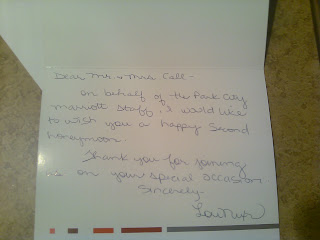 Dear Mr. & Mrs. Call -
on behalf of the Park City
Marriott Staff, I would like
to wish you a happy second
honeymoon.
Thank you for joining
us on your special occasion
Sincerely